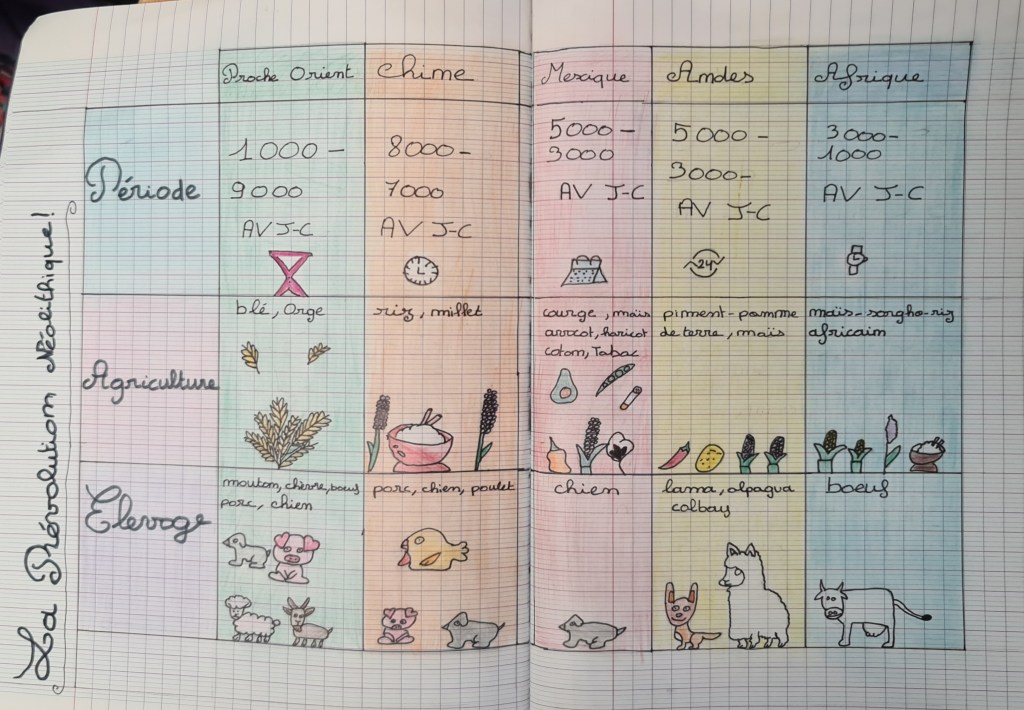 La Prévolution Néolithique!
Proche Orient
Chine
Mexique
Andes
Afrique
Période
1000 -
9000
AV J-C
8000-
7000
AV J-C
5000 -
3000
AV J-C
5000 -
3000-
AV J-C
24
3000-
1000
AV J-C
Agriculture
blé, Orge
riz, millet
courge, maïs
avocat, haricot
coton, Tabac
piment-pomme
de terre, maïs
maïs-sorgho-riz
africain
Elevage
mouton, chèvre, boeuf
porc, chien
porc, chien, poulet
chien
lama, alpagua
colbay
boeuf